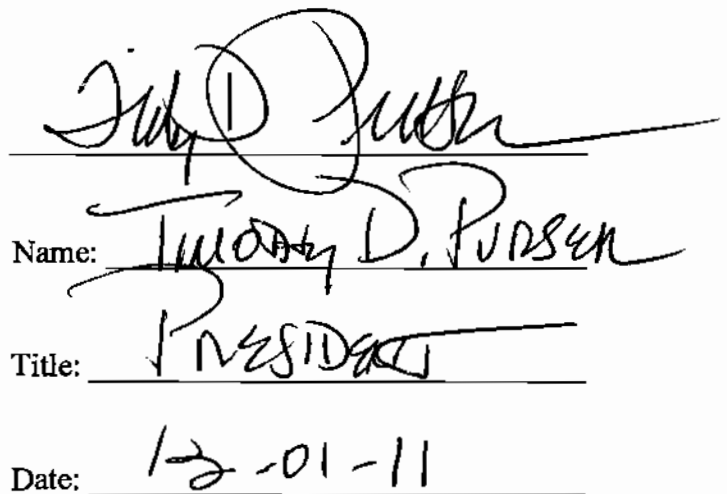 Name: Timothy D. Purser
Title: President
Date: 12-01-11